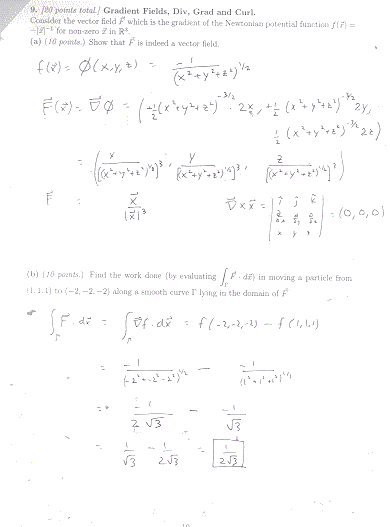 9. [20 points total.] Gradient Fields, Div, Grad and Curl.
Consider the vector field F⃗ which is the gradient of the Newtonian potential function f(x⃗) =
−|x⃗|⁻¹ for non-zero x⃗ in R³.
(a) (10 points.) Show that F⃗ is indeed a vector field.
f(x⃗) = ϕ(x,y,z) = -1 / (x²+y²+z²)^{1/2}
F⃗(x⃗) = ∇⃗ϕ = (+1/2 (x²+y²+z²)^{-3/2} · 2x, +1/2 (x²+y²+z²)^{-3/2} 2y,
1/2 (x²+y²+z²)^{-3/2} 2z)
= (x / [(x²+y²+z²)^{1/2}]³, y / [(x²+y²+z²)^{1/2}]³, z / [(x²+y²+z²)^{1/2}]³)
F⃗ = x⃗ / |x⃗|³ ∇⃗ × x⃗ = | i j k | = (0, 0, 0)
x y z
(b) (10 points.) Find the work done (by evaluating ∫_Γ F⃗ · dx⃗) in moving a particle from
(1, 1, 1) to (−2, −2, −2) along a smooth curve Γ lying in the domain of F⃗
∫_Γ F⃗ · dx⃗ = ∫_Γ ∇⃗f · dx⃗ = f(-2,-2,-2) − f(1,1,1)
= -1 / (-2²+-2²-2²)^{1/2} − -1 / (1²+1²+1²)^{1/2}
= -1 / 2√3 − -1 / √3
= 1/√3 − 1/2√3 = 1/2√3